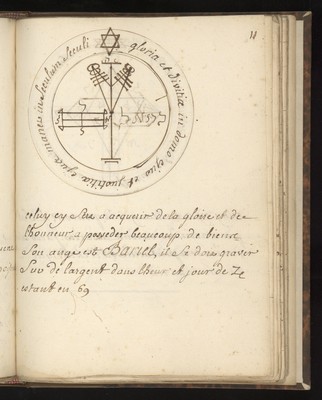 11
gloria et divitiæ in domo ejus et justitia ejus manet in Seculum Seculi
celuy cy sert a acquerir de la gloire et de
lhonneur a posseder beaucoup de biens
Son ange est Bariel, il se dois graver
Sur de l'argent dans lheur et jour de ♃
estant en 69